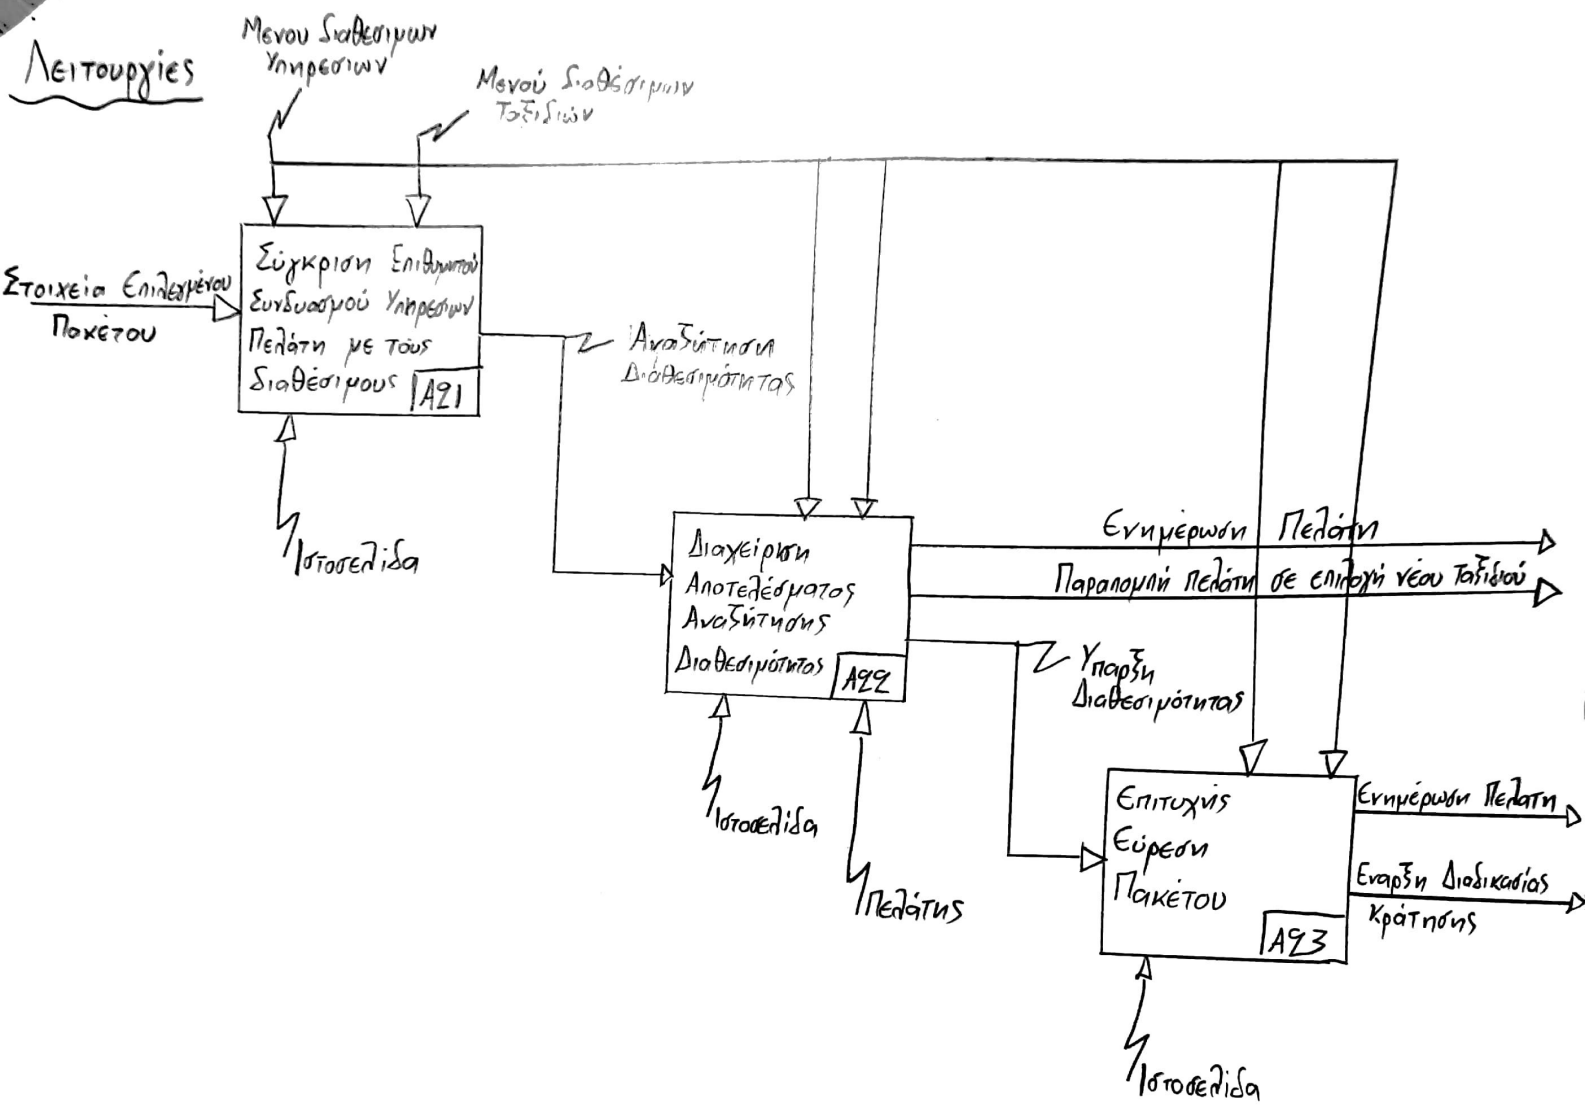 Λειτουργίες
Μενου διαθεσιμων
Υπηρεσιων
Μενού διαθέσιμων
Ταξιδιών
Στοιχεία Επιλεγμένου
Πακέτου
Σύγκριση Επιθυμητού
Συνδυασμού Υπηρεσιων
Πελάτη με τους
διαθέσιμους
A21
Αναζήτηση
Διαθεσιμότητας
Ιστοσελίδα
Διαχείριση
Αποτελέσματος
Αναζήτησης
Διαθεσιμότητας
A22
Ενημέρωση Πελάτη
Παραπομπή πελάτη σε επιλογή νέου Ταξιδιού
Υπαρξη
Διαθεσιμότητας
Ιστοσελίδα
Πελάτης
Επιτυχής
Εύρεση
Πακέτου
A23
Ενημέρωση Πελατη
Εναρξη Διαδικασίας
Κράτησης
Ιστοσελίδα